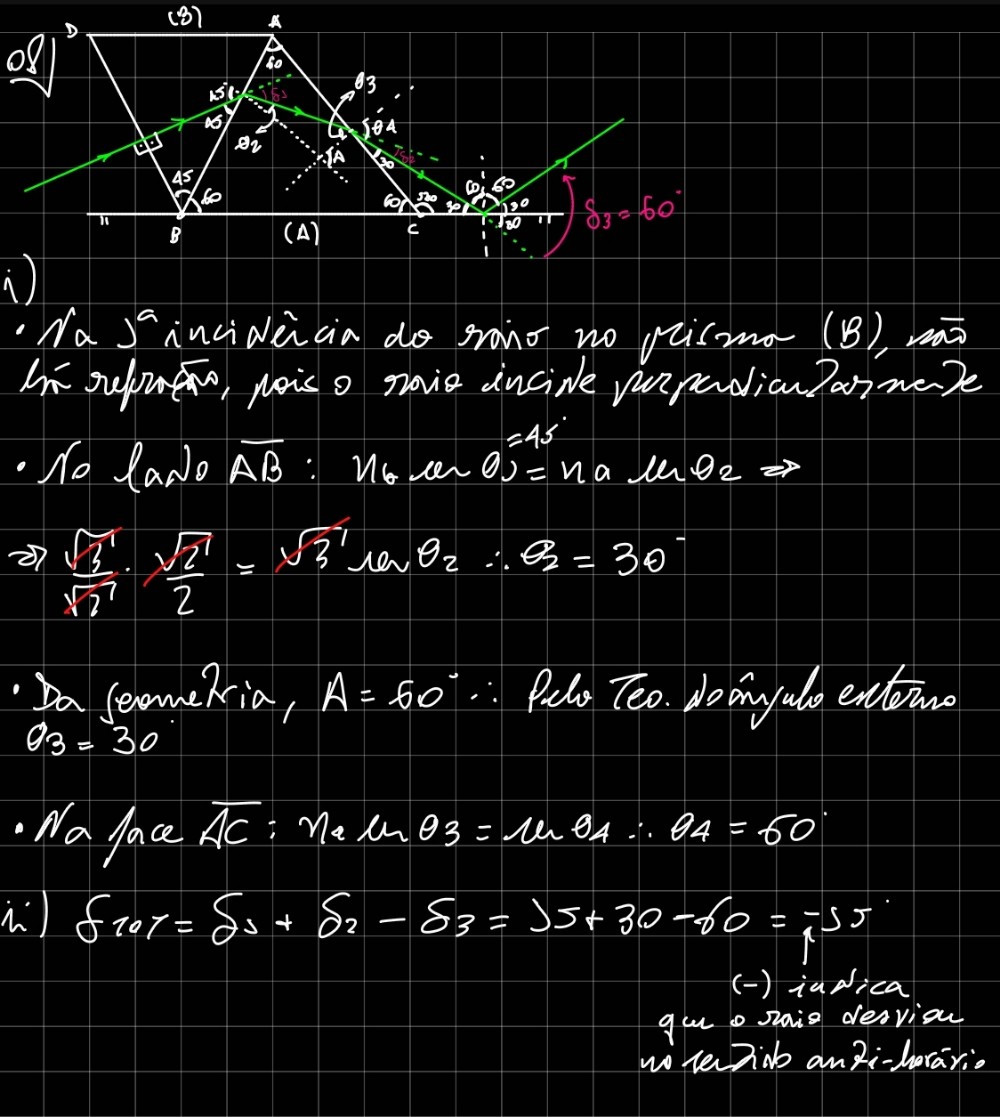 08)
D (B) A
60
θ3
45 δ1
45 θ2 A θ4
30 δ2
45
60 60 120 30 60 60 30
30
B (A) C
δ3 = 60°
i)
• Na 1ª incidência do raio no prisma (B), não
há refração, pois o raio incide perpendicularmente
=45°
• No lado AB : nb sen θ1 = na sen θ2 ⇒
⇒ √3/√2 · √2/2 = √3 sen θ2 ∴ θ2 = 30°
• Da geometria, A = 60° ∴ Pelo Teo. do ângulo externo
θ3 = 30°
• Na face AC : na sen θ3 = sen θ4 ∴ θ4 = 60°
ii) δTOT = δ1 + δ2 − δ3 = 15 + 30 − 60 = −15°
(−) indica
que o raio desviou
no sentido anti-horário